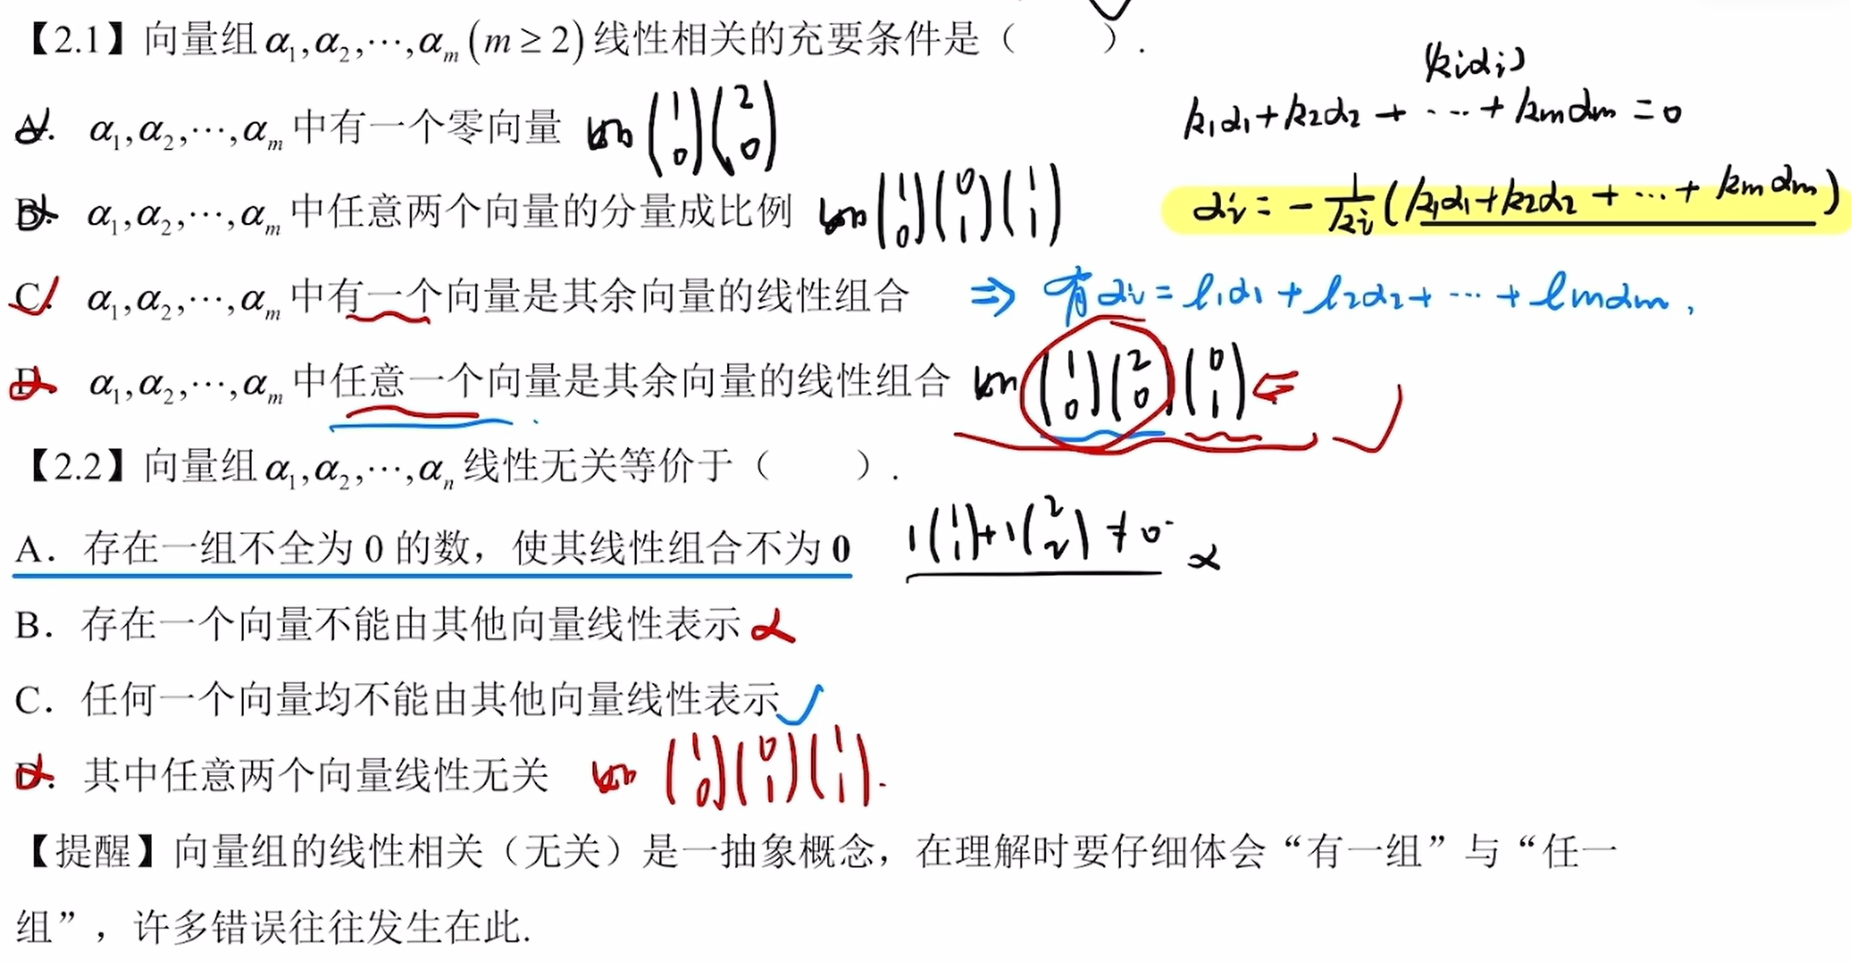 【2.1】向量组 α₁,α₂,⋯,αₘ (m ≥ 2) 线性相关的充要条件是（　　）.
(kᵢαᵢ)
k₁α₁+k₂α₂+⋯+kₘαₘ=0
A. α₁,α₂,⋯,αₘ 中有一个零向量 如 (1 0) (2 0)
B. α₁,α₂,⋯,αₘ 中任意两个向量的分量成比例 如 (1 0) (0 1) (1 1)
αᵢ = -1/kᵢ (k₁α₁+k₂α₂+⋯+kₘαₘ)
C. α₁,α₂,⋯,αₘ 中有一个向量是其余向量的线性组合 ⇒ 有αᵢ = l₁α₁+l₂α₂+⋯+lₘαₘ,
D. α₁,α₂,⋯,αₘ 中任意一个向量是其余向量的线性组合 如 (1 0) (2 0) (0 1) ⇐
【2.2】向量组 α₁,α₂,⋯,αₙ 线性无关等价于（　　）.
A．存在一组不全为 0 的数，使其线性组合不为 0 1(1 1)+1(2 2)≠0
B．存在一个向量不能由其他向量线性表示
C．任何一个向量均不能由其他向量线性表示 ✓
D．其中任意两个向量线性无关 如 (1 0) (0 1) (1 1).
【提醒】向量组的线性相关（无关）是一抽象概念，在理解时要仔细体会“有一组”与“任一
组”，许多错误往往发生在此.